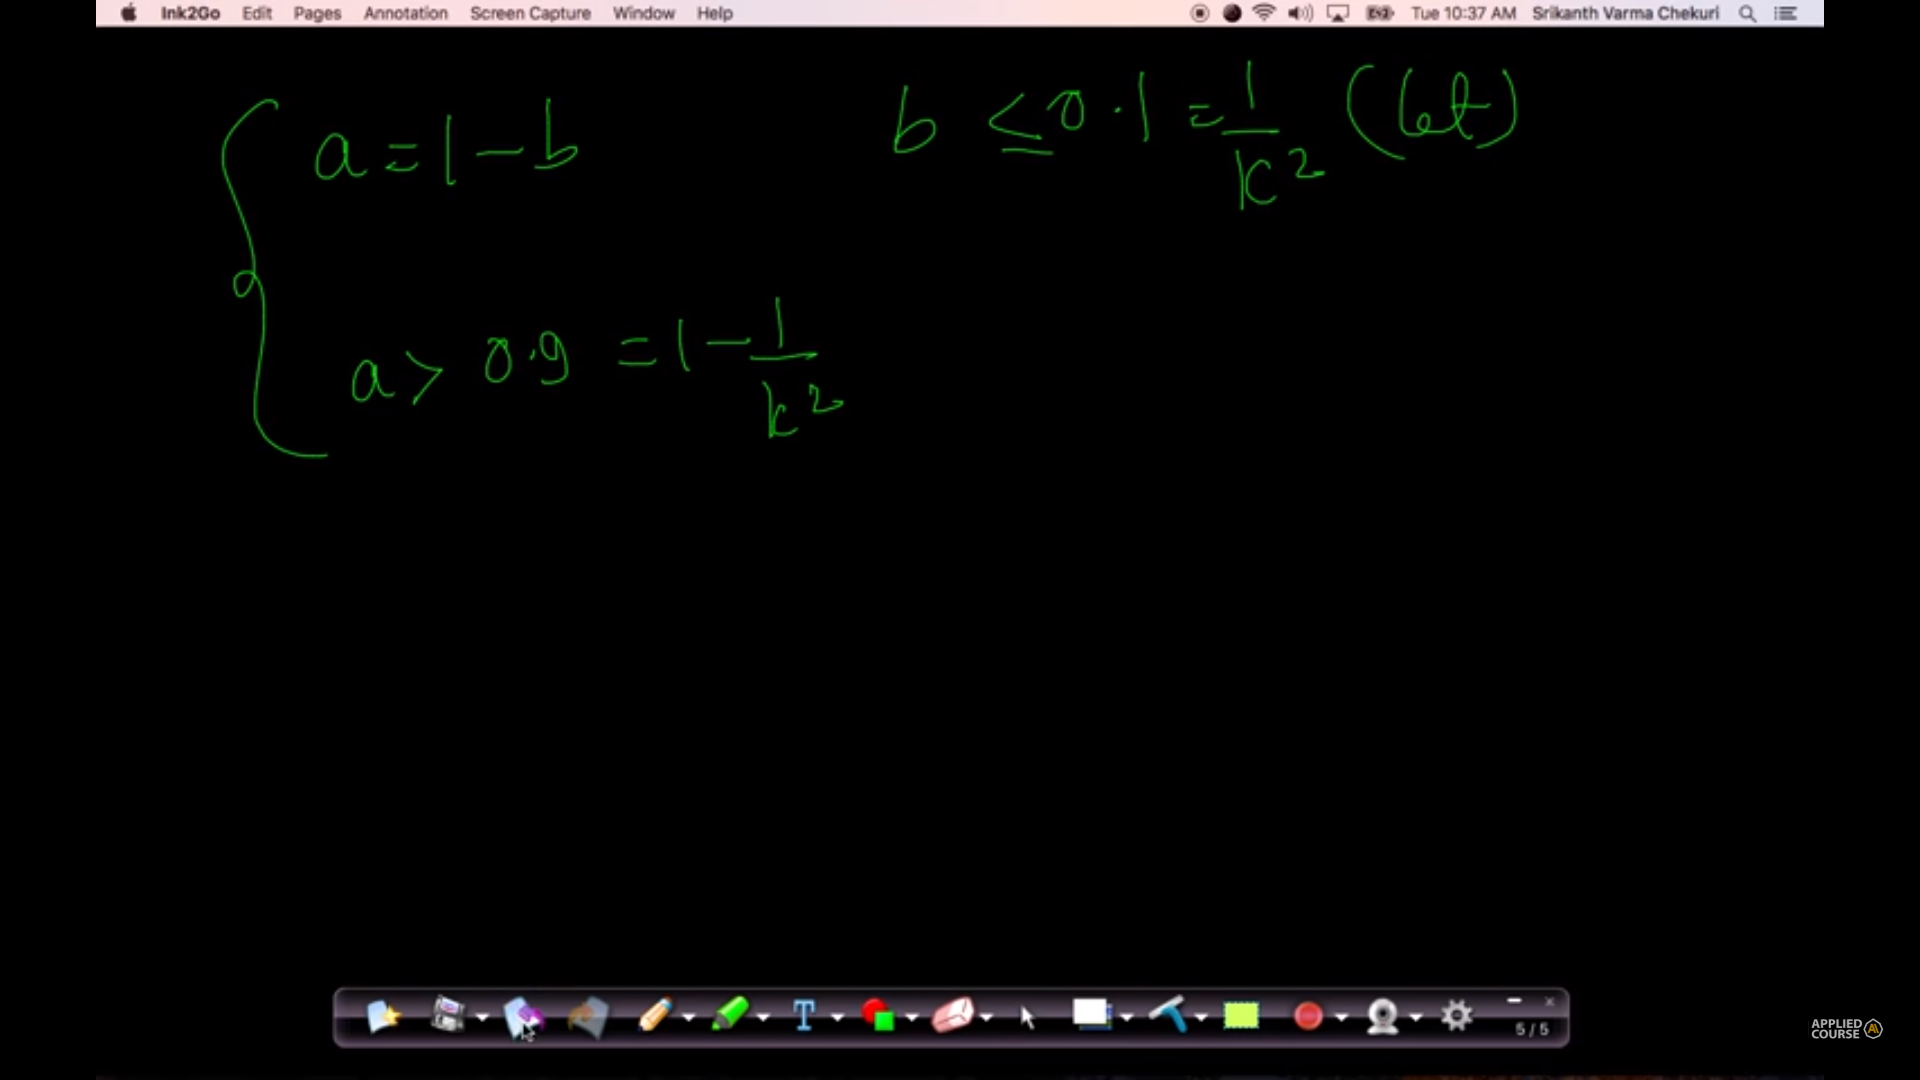 Ink2Go Edit Pages Annotation Screen Capture Window Help Tue 10:37 AM Srikanth Varma Chekuri
a = 1 - b
b ≤ 0.1 = 1/k² (let)
a > 0.9 = 1 - 1/k²
T
5 / 5
APPLIED
COURSE